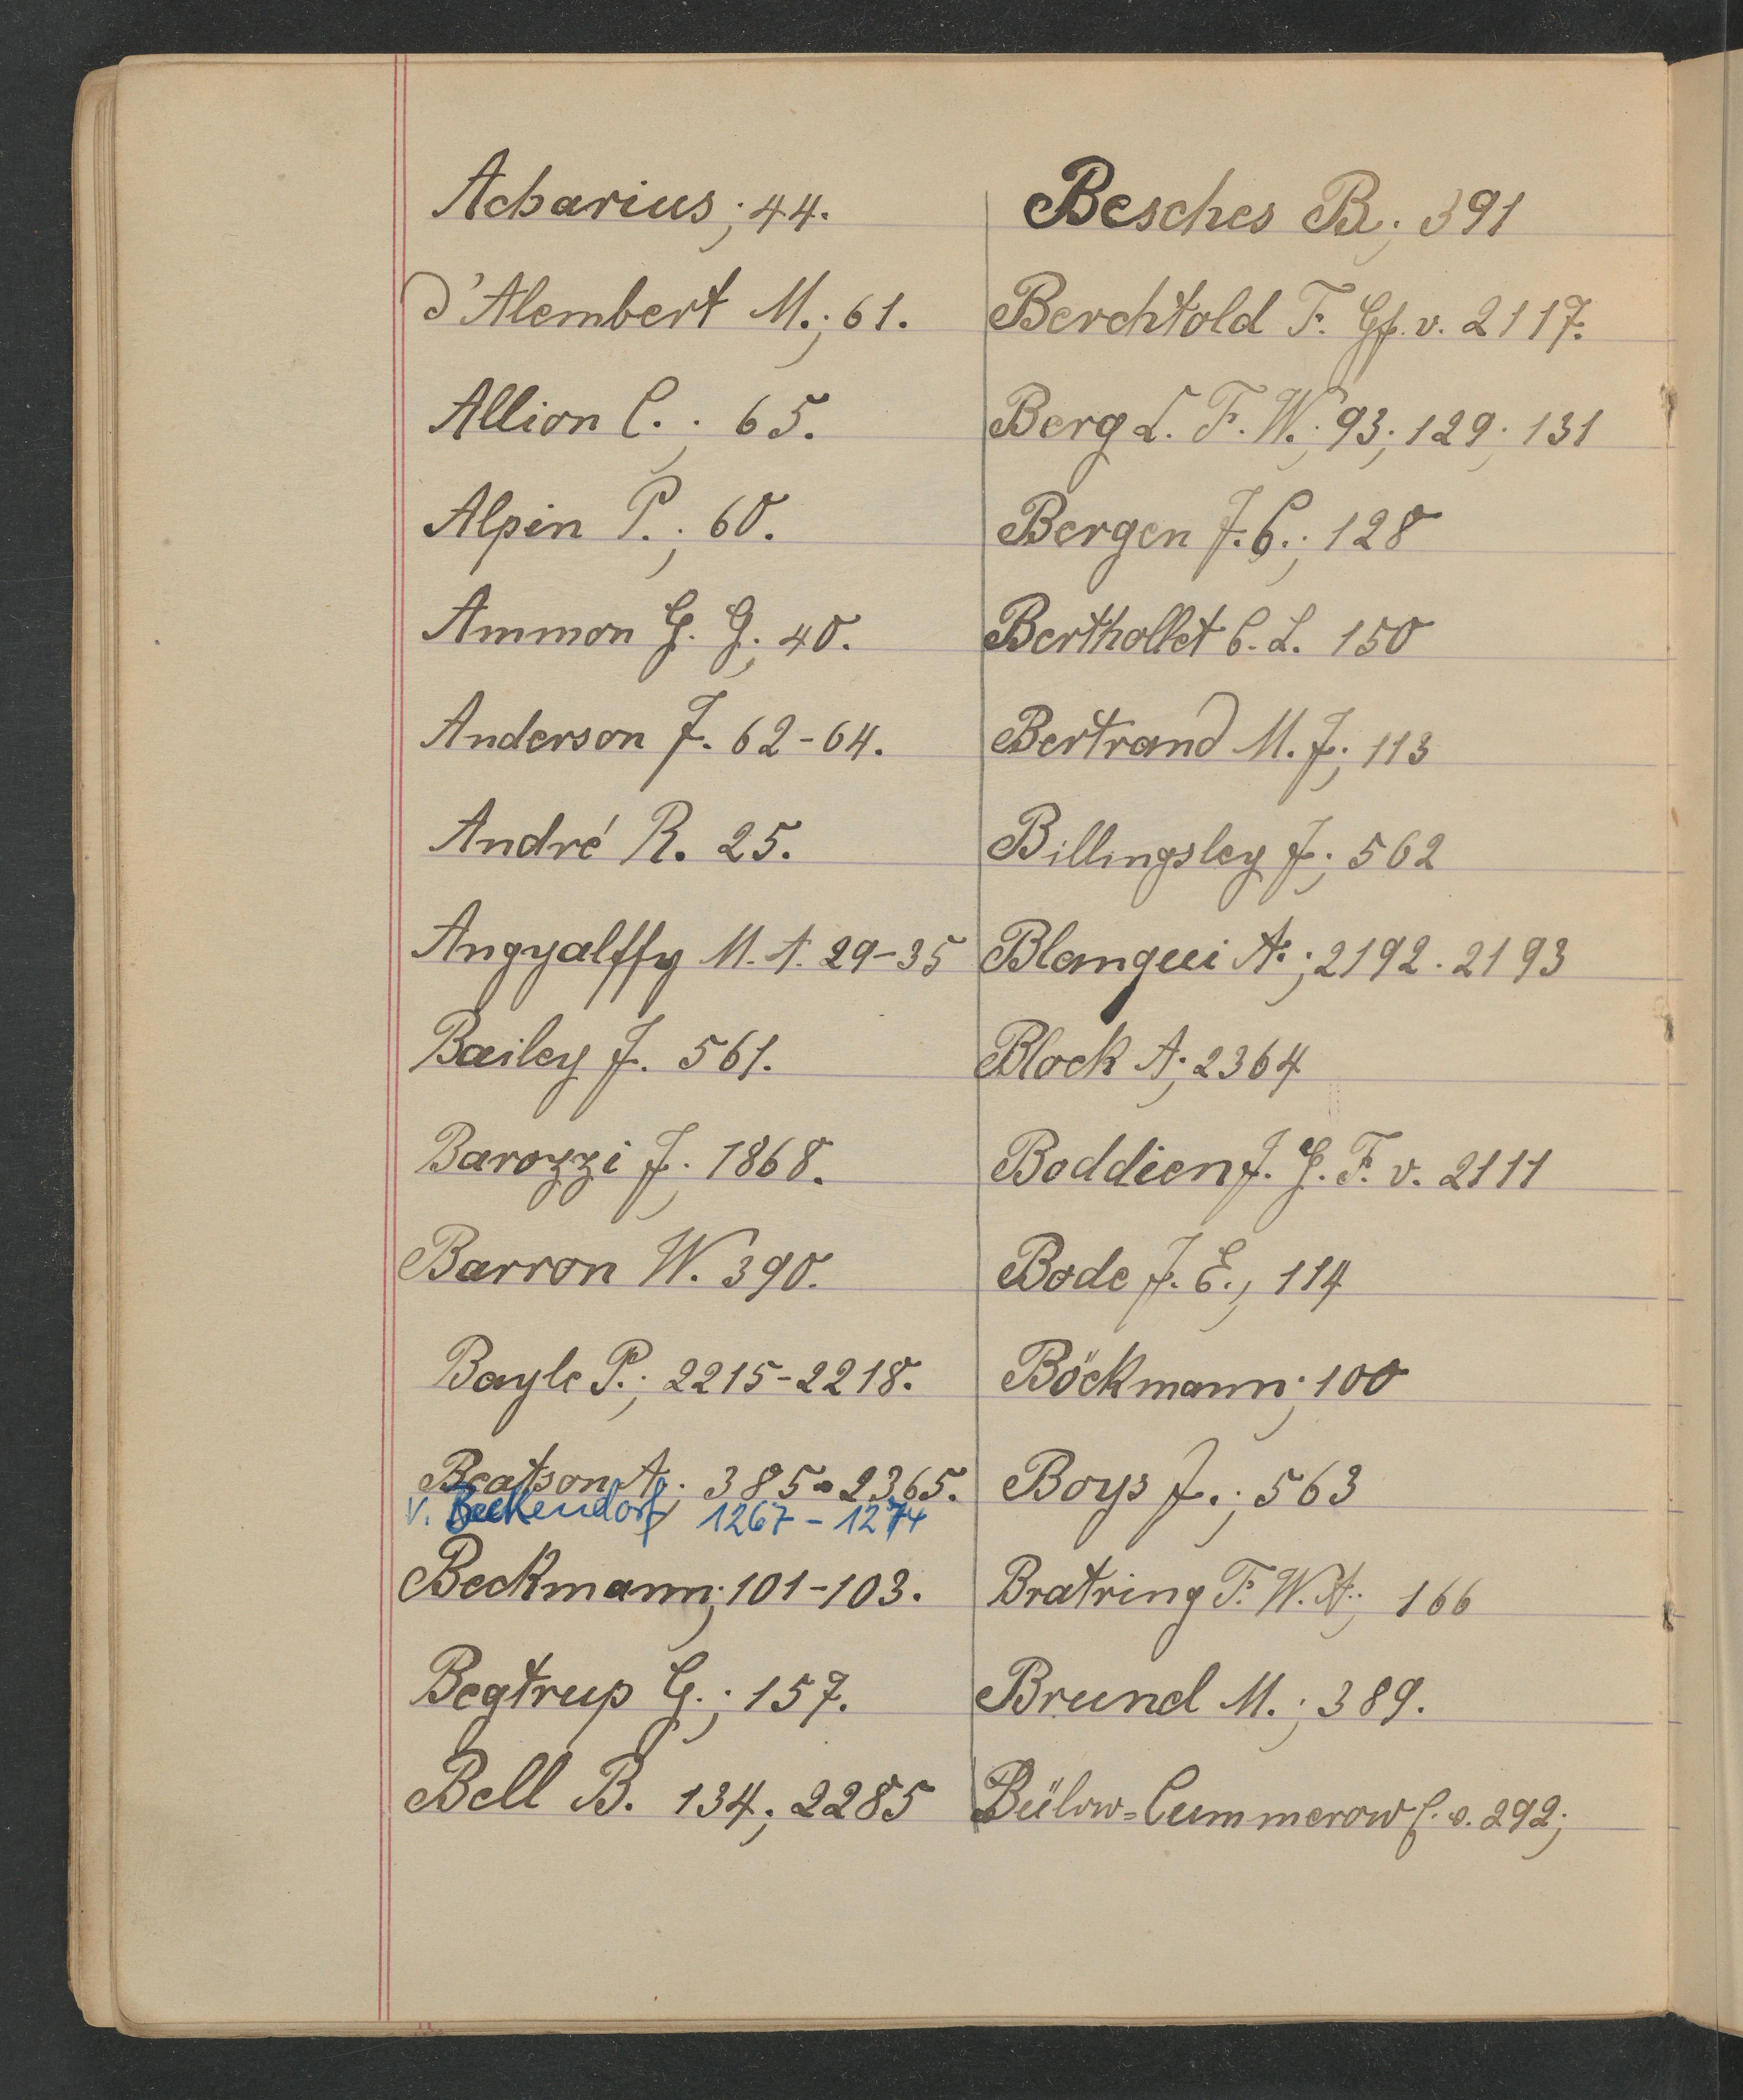 Acharius; 44.
d'Alembert M.; 61.
Allion C.; 65.
Alpin P.; 60.
Ammon G. G; 40.
Anderson J. 62-64.
André R. 25.
Angyalffy M. A. 29-35
Bailey J. 561.
Barozzi J; 1868.
Barron W. 390.
Bayle P.; 2215-2218.
Beatson A; 385 2365.
v. Beckendorf 1267-1274
Beckmann; 101-103.
Begtrup G.; 157.
Bell B. 134; 2285
Besches B; 391
Berchtold F. Gf. v. 2117.
Berg L. F. W.; 93; 129; 131
Bergen J. C.; 128
Berthollet C. L. 150
Bertrand M. J; 113
Billingsley J; 562
Blanqui A.; 2192. 2193
Block A; 2364
Boddien J. G. F. v. 2111
Bode J. E., 114
Böckmann; 100
Boys J.; 563
Bratring F. W. A; 166
Brunel M.; 389.
Bülow=Cummerow v. 292;